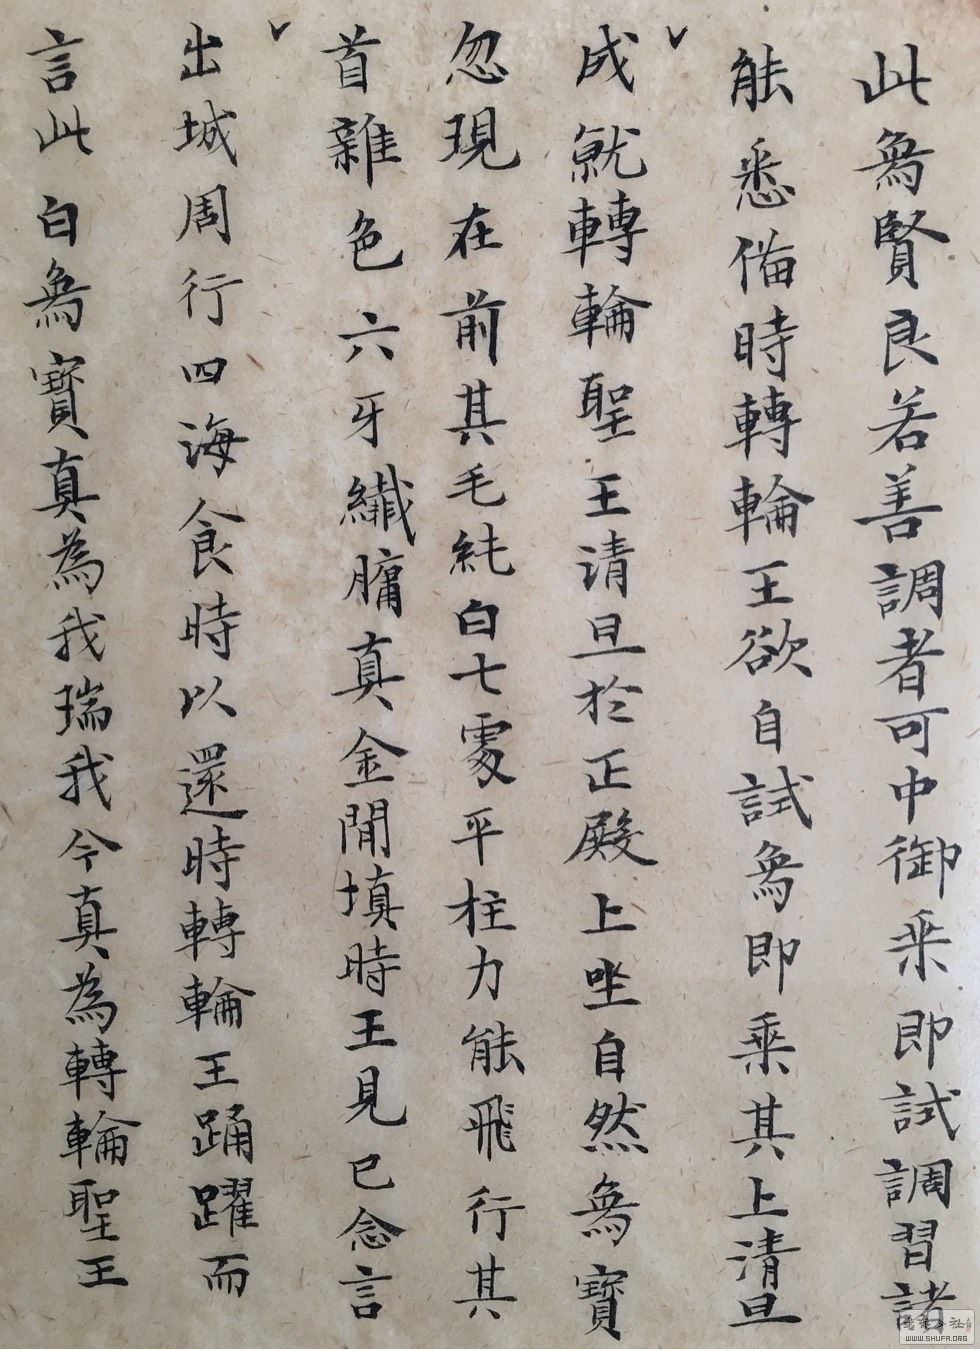 此為賢良若善調者可中御乘即試調習諸
能悉俻時轉輪王欲自試為即乘其上清旦
成就轉輪聖王清旦於正殿上坐自然為寶
忽現在前其毛純白七處平柱力能飛行其
首雜色六牙纖𦟛真金間填時王見已念言
出城周行四海食時以還時轉輪王踊躍而
言此白為寶真為我瑞我今真為轉輪聖王
WWW.SHUFA.ORG